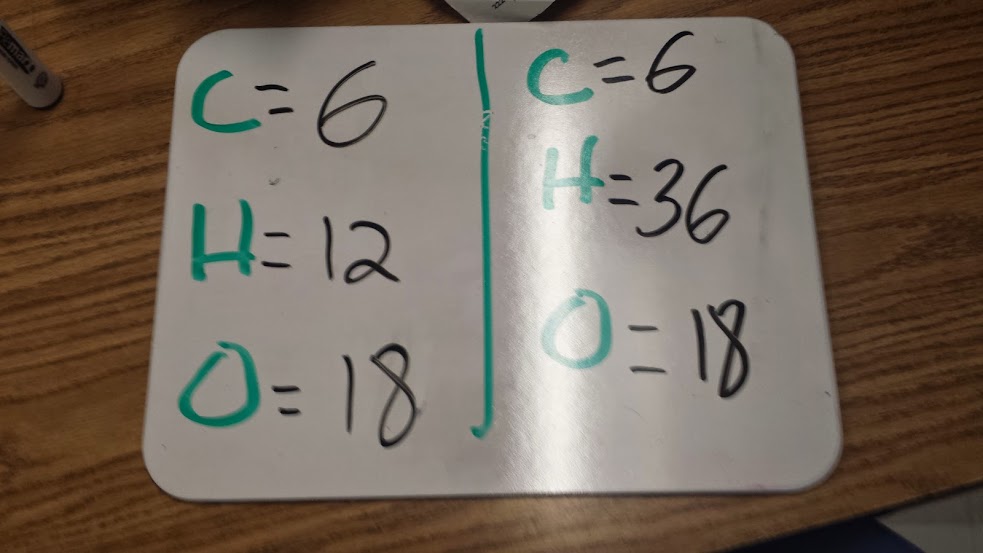 C = 6
H = 12
O = 18
C = 6
H = 36
O = 18